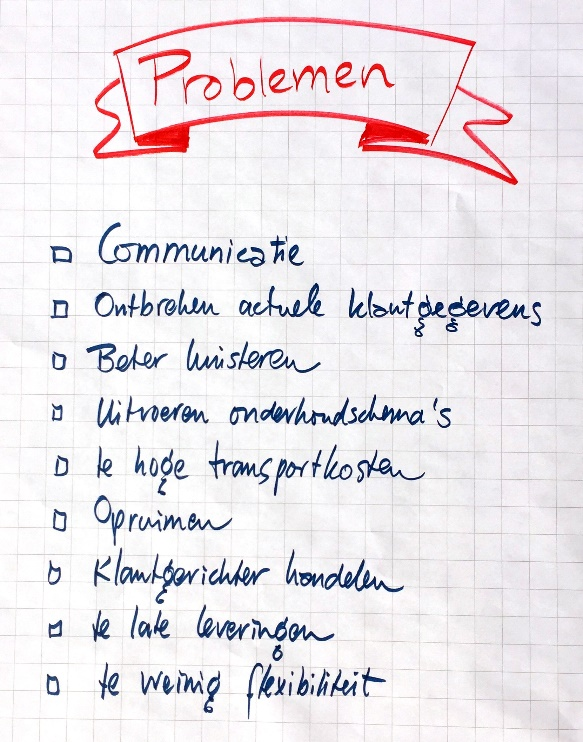 Problemen
Communicatie
Ontbreken actuele klantgegevens
Beter luisteren
Uitvoeren onderhoudschema's
te hoge transportkosten
Opruimen
Klantgerichter handelen
te late leveringen
te weinig flexibiliteit